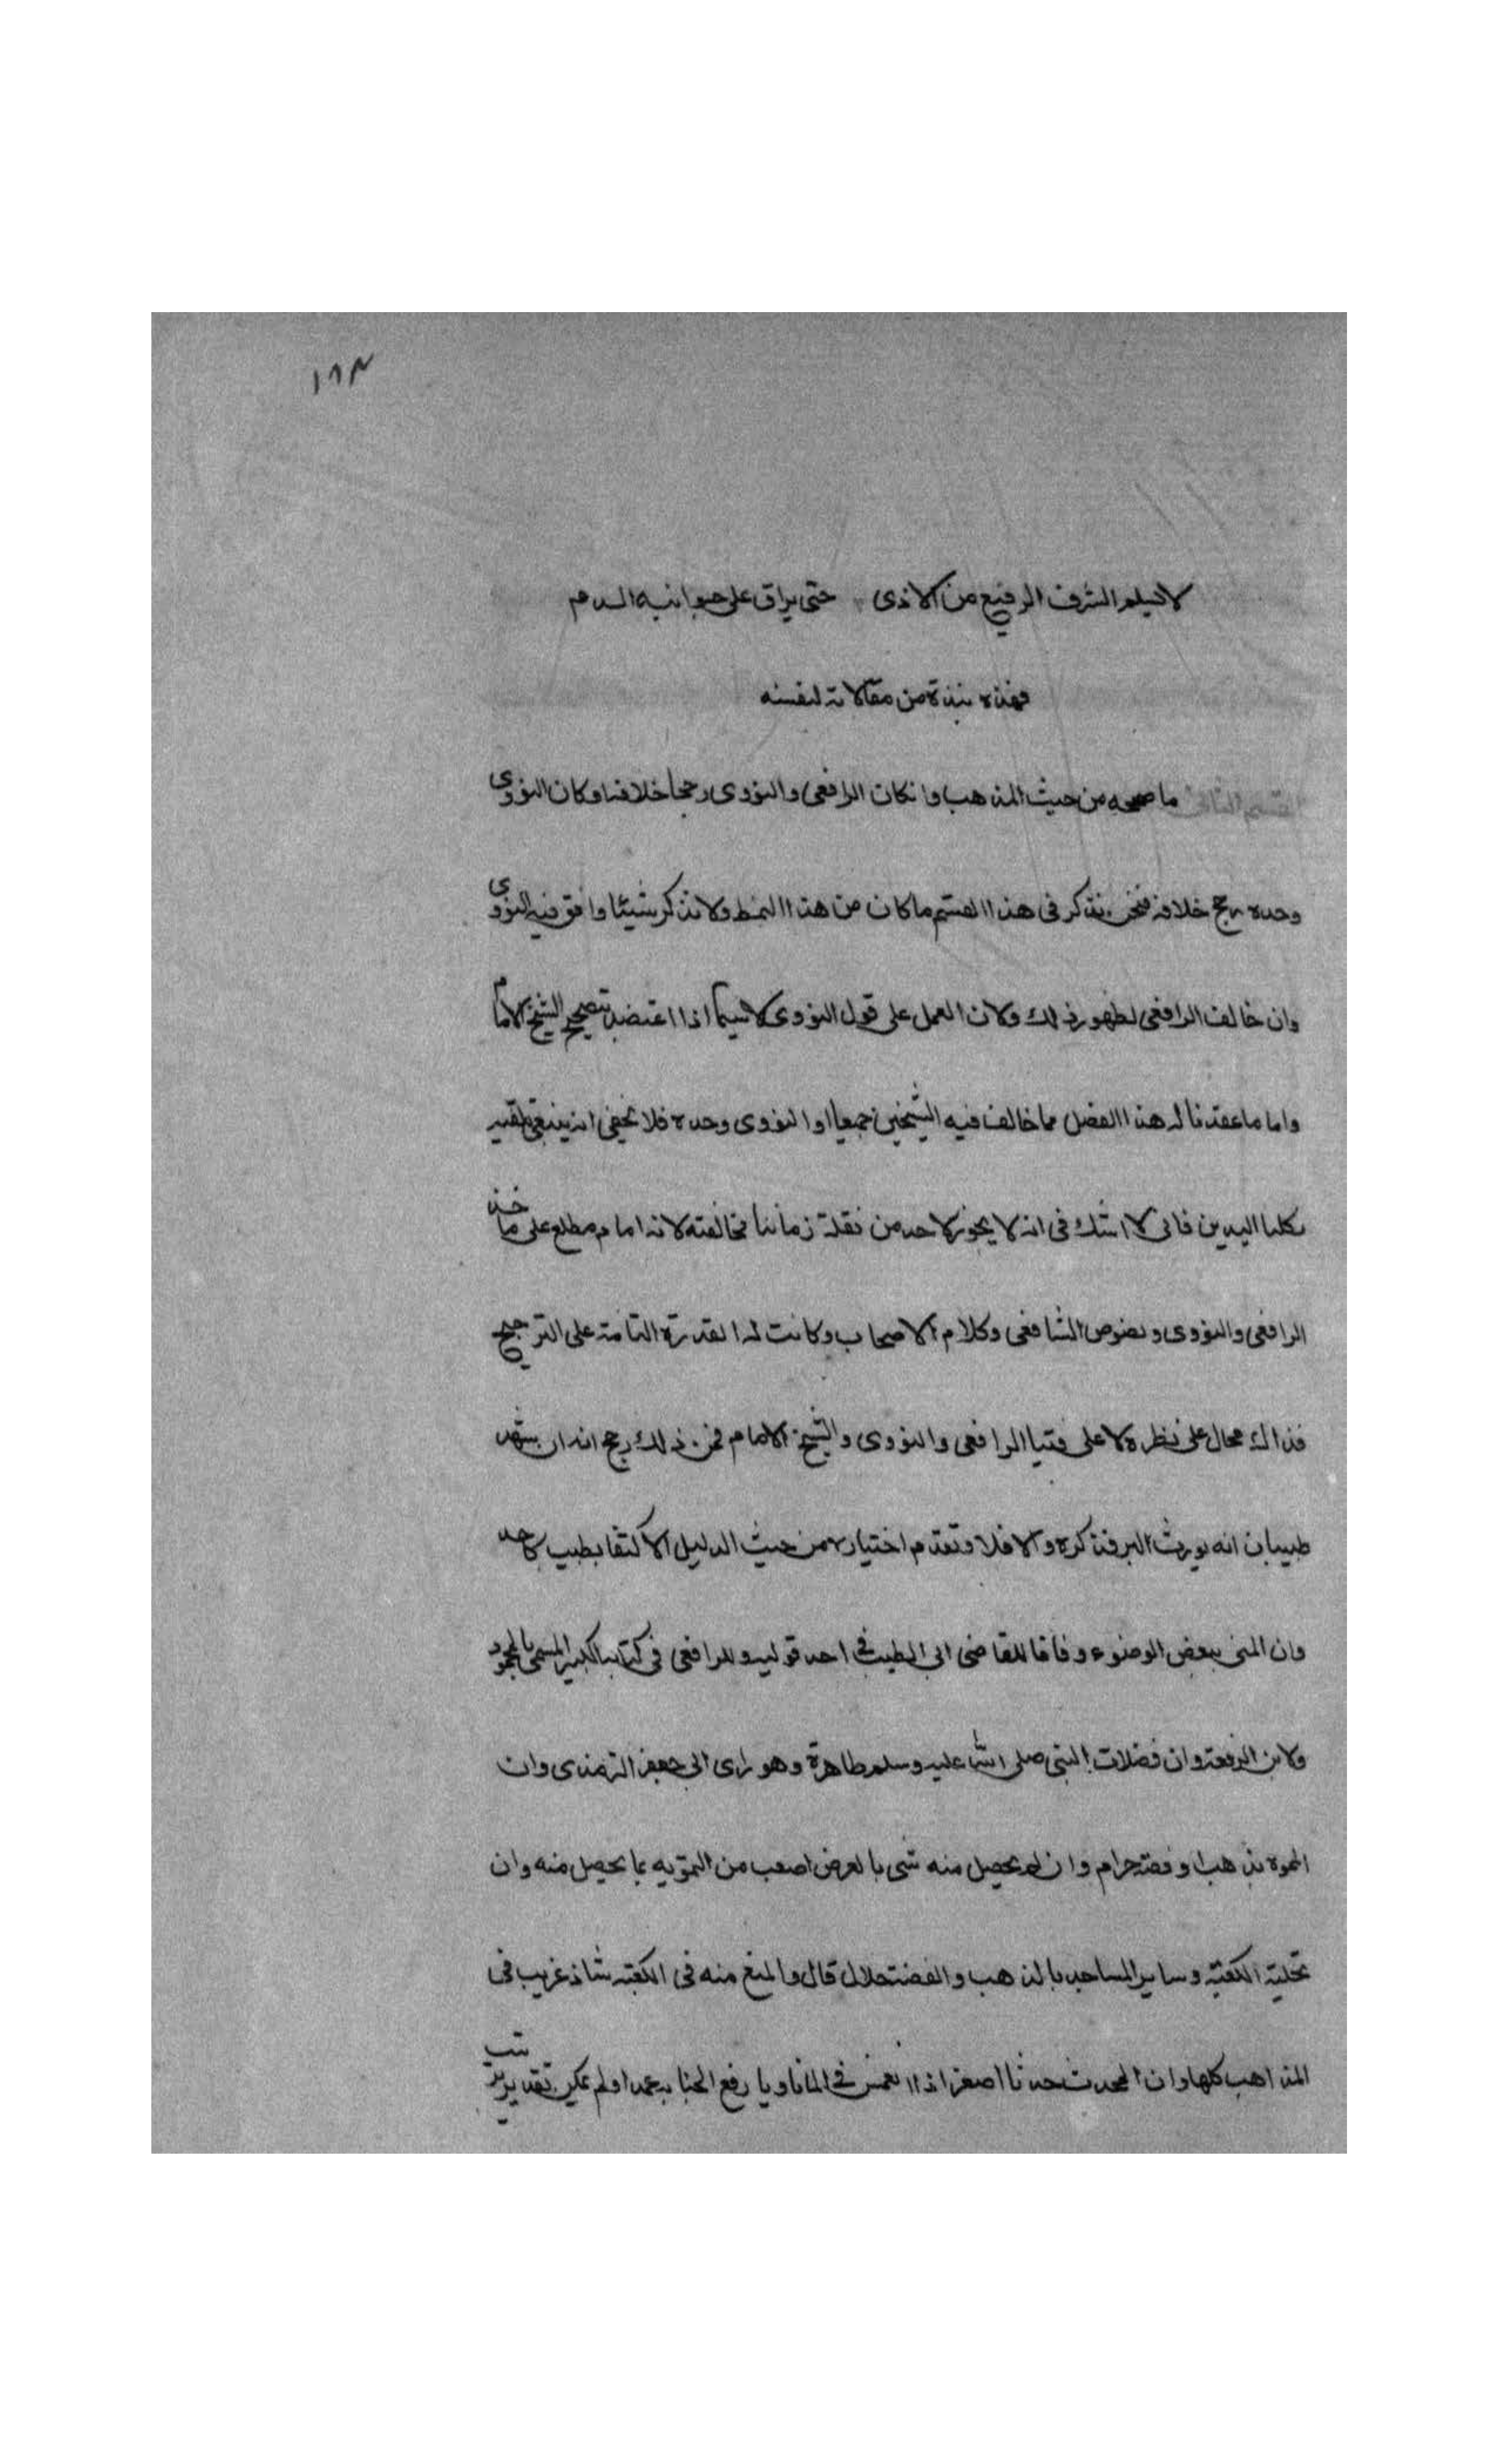 ١٦٣
لا يسلم الشرف الرفيع من الاذى حتى يراق على جوانبه الدم
فهذه نبذة من مقالاته لنفسه
القسم الثانى ما صححه من حيث المذهب وان كان الرافعى والنووى رجحا خلافه او كان النووى
وحده رجح خلافه فنحن نذكر فى هذا القسم ما كان من هذا النمط ولا نذكر شيئا وافق فيه النووى
وان خالف الرافعى لظهور ذلك ولان العمل على قول النووى لا سيما اذا اعتضد بتصحيح الشيخ الامام
واما ما عقدنا له هذا الفصل مما خالف فيه الشيخين جميعا او النووى وحده فلا يخفى انه ينبغى تلقيه
بكلتا اليدين فانى لا اشك فى انه لا يجوز لاحد من نقلة زماننا مخالفته لانه امام مطلع على ماخذ
الرافعى والنووى ونصوص الشافعى وكلام الاصحاب وكانت له القدرة التامة على الترجيح
فذاك محال على نظره لا على فتيا الرافعى والنووى والشيخ الامام فمن ذلك رجح انه ان شهد
طبيبان انه يورث البرص كره والا فلا وتقدم اختياره من حيث الدليل الاكتفا بطبيب واحد
وان المنى ينقض الوضوء وفاقا للقاضى ابى الطيب فى احد قوليه وللرافعى فى كتابه الكبير المسمى بالمحمود
ولابن الرفعة وان فضلات النبى صلى الله عليه وسلم طاهرة وهو راى ابى جعفر الترمذى وان
المموه بذهب او فضة حرام وان لم يحصل منه شى بالعرض اصعب من التمويه بما يحصل منه وان
تحلية الكعبة وساير المساجد بالذهب والفضة حلال قال والمنع منه فى الكعبة شاذ غريب فى
المذاهب كلها وان المحدث حدثا اصغر اذا انغمس فى الما ناويا رفع الجنابة عمدا ولم يمكن تقدير ترتيب